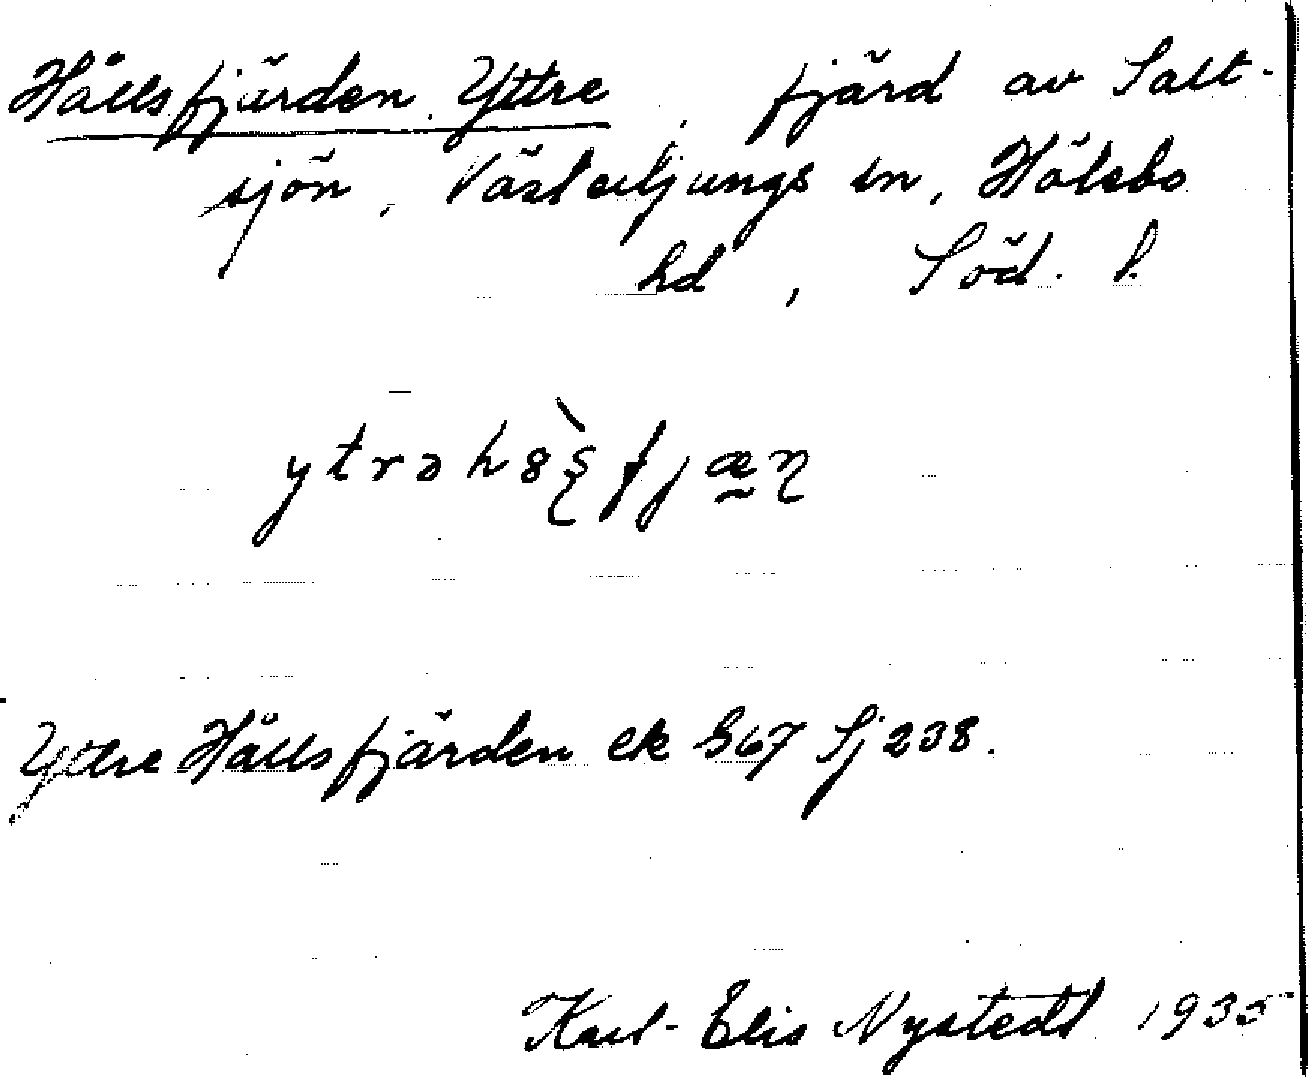 Hållsfjärden, Yttre, fjärd av Salt-
sjön, Västerljungs sn, Hölebo
hd, Söd. l.
ytrə h8̀ʂfjæ̰ɳ
Yttre Hållsfjärden ek S67 Sj 238.
Karl-Elis Nystedt 1935